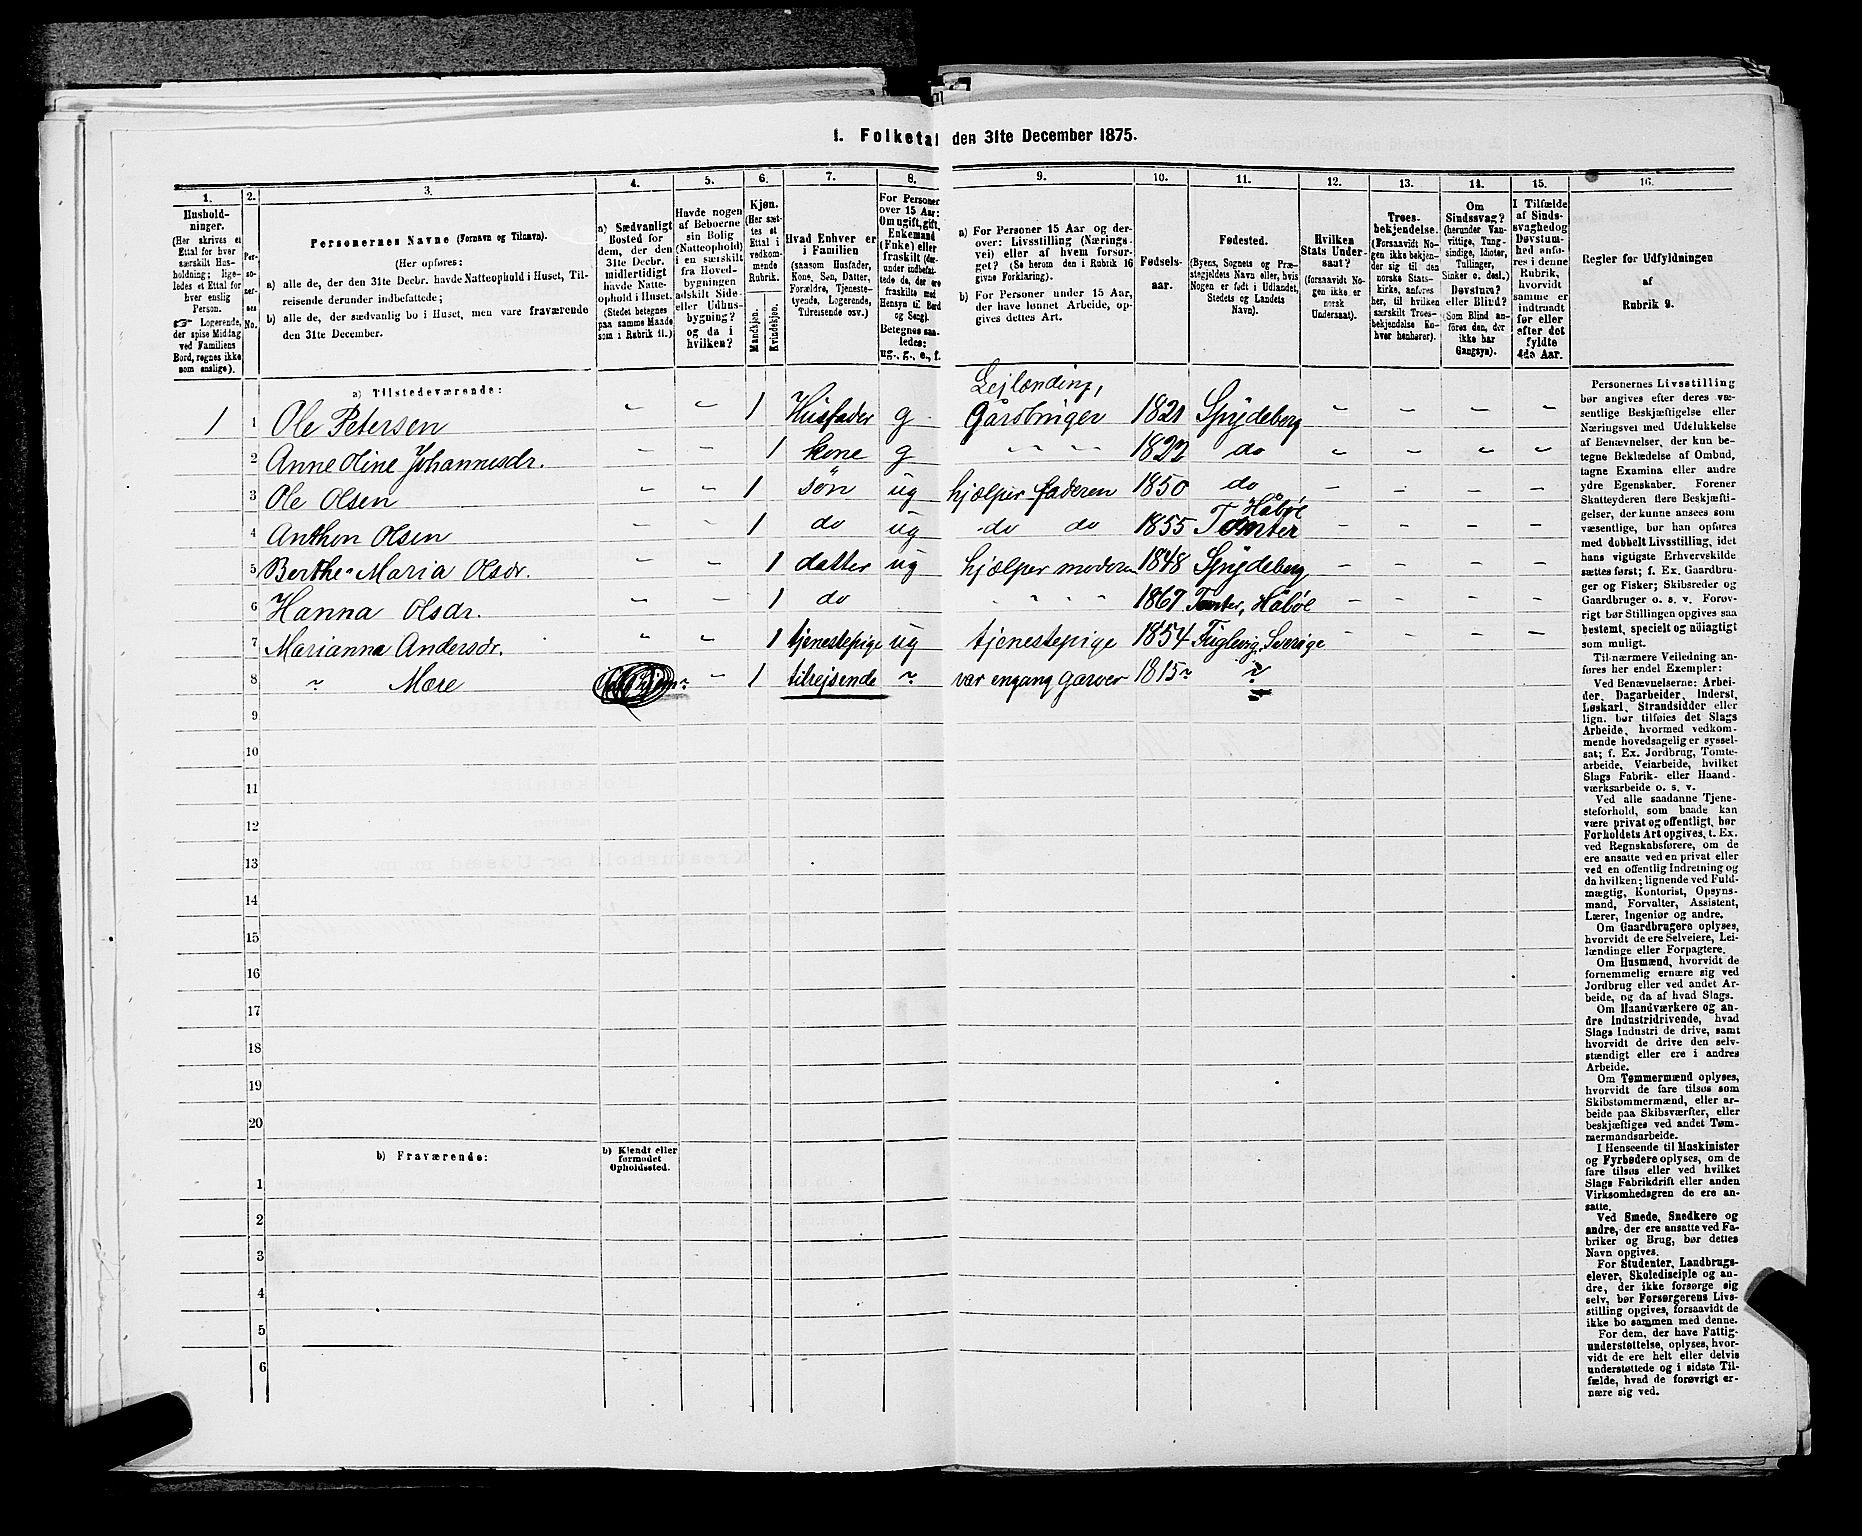 1. Folketal den 31te December 1875.
1. 2. 3. 4. 5. 6. 7. 8. 9. 10. 11. 12. 13. 14. 15. 16.
Hushold-
ninger.
(Her skrives et
Ettal for hver
særskilt Hus-
holdning; lige-
ledes et Ettal for
hver enslig
Person.
☞ Logerende,
der spise Middag
ved Familiens
Bord, regnes ikke
som enslige).
Per-
so-
ner-
nes
No.
Personernes Navne (Fornavn og Tilnavn).
(Her opføres:
a) alle de, der den 31te Decbr. havde Natteophold i Huset, Til-
reisende derunder indbefattede;
b) alle de, der sædvanlig bo i Huset, men vare fraværende
den 31te December.
a) Sædvanligt
Bosted for
dem, der den
31te Decbr.
midlertidigt
havde Natte-
ophold i Huset.
(Stedet betegnes
paa samme Maade
som i Rubrik 11.)
Havde nogen
af Beboerne
sin Bolig
(Natteophold)
i en særskilt
fra Hoved-
bygningen
adskilt Side-
eller Udhus-
bygning?
og da i
hvilken?
Kjøn.
(Her sæt-
tes et
Ettal i
vedkom-
mende
Rubrik.
Mandkjøn.
Kvindekjøn.
Hvad Enhver er
i Familien
(saasom Husfader,
Kone, Søn, Datter,
Forældre, Tjeneste-
tyende, Logerende,
Tilreisende osv.)
For Personer
over 15 Aar:
Om ugift, gift,
Enkemand
(Enke) eller
fraskilt (der-
under indbefat-
tede de, der ere
fraskilte med
Hensyn til Bord
og Seng).
Betegnes saa-
ledes:
ug., g., e., f.
a) For Personer 15 Aar og der-
over: Livsstilling (Nærings-
vei) eller af hvem forsør-
get? (Se herom den i Rubrik 16
givne Forklaring).
b) For Personer under 15 Aar,
der have lønnet Arbeide, op-
gives dettes Art.
Fødsels-
aar.
Fødested.
(Byens, Sognets og Præ-
stegjeldets Navn eller, hvis
Nogen er født i Udlandet,
Stedets og Landets
Navn).
Hvilken
Stats Under-
saat?
(forsaavidt No-
gen ikke er
norsk
Undersaat).
Troes-
bekjendelse.
(Forsaavidt No-
gen ikke bekjen-
der sig til den
norske Stats-
kirke, anføres
her, til hvilken
særskilt Troes-
bekjendelse En-
hver henhører).
Om
Sindssvag?
(herunder Van-
vittige, Tung-
sindige, Idioter,
Tullinger,
Sinker o. desl.)
Døvstum?
eller Blind?
(Som Blind an-
føres den, der
ikke har
Gangsyn).
I Tilfælde
af Sinds-
svaghed og
Døvstum-
hed anfø-
res i denne
Rubrik,
hvorvidt
samme er
indtraadt
før eller
efter det
fyldte
4de Aar.
Regler for Udfyldningen
af
Rubrik 9.
a) Tilstedeværende:
1 1 Ole Petersen " " 1 Husfader g Lejlænding, Gårdbruger 1821 Spydeberg – – – –
2 Anne Oline Johannesdr. 1 kone g " " " 1822 do " " " "
3 Ole Olsen " " 1 søn ug hjælper faderen 1850 do – – – –
4 Anthon Olsen " " 1 do ug do do 1855 Tomter Håbøl – – – –
5 Berthe Maria Olsdr. " " 1 datter ug hjælper moderen 1848 Spydeberg – – – –
6 Hanna Olsdr. " " 1 do " " " " 1867 Tomter, Håbøl – – – –
7 Marianna Andersdr. " " 1 tjenestepige ug tjenestepige 1854 Sverige – – –
8 " Møre " 1 tilrejsende " var engang garver 1815 "
9
10
11
12
13
14
15
16
17
18
19
20
b) Fraværende:
b) Kjendt eller
formodet
Opholdssted.
1
2
3
4
5
6
Personernes Livsstilling
bør angives efter deres væ-
sentlige Beskjæftigelse eller
Næringsvei med Udelukkelse
af Benævnelser, der kun be-
tegne Beklædelse af Ombud,
tagne Examina eller andre
ydre Egenskaber. Forener
Skatteyderen flere Beskjæfti-
gelser, der kunne ansees som
væsentlige, bør han opføres
med dobbelt Livsstilling, idet
hans vigtigste Erhvervskilde
sættes først; f. Ex. Gaardbru-
ger og Fisker; Skibsreder og
Gaardbruger o. s. v. Forøv-
rigt bør Stillingen opgives saa
bestemt, specielt og nöiagtigt
som muligt.
Til nærmere Veiledning an-
føres her endel Exempler:
Ved Benævnelserne: Arbei-
der, Dagarbeider, Inderst,
Løskarl, Strandsidder eller
lign. bør tilføies det Slags
Arbeide, hvormed vedkom-
mende hovedsagelig er syssel-
sat; f. Ex. Jordbrug, Tomte-
arbeide, Veiarbeide, hvilket
Slags Fabrik- eller Haand-
værksarbeide o. s. v.
Ved alle saadanne Tjene-
steforhold, som baade kan
være privat og offentligt, bør
Forholdets Art opgives, t. Ex.
ved Regnskabsførere, om de
ere ansatte ved en privat eller
ved en offentlig Indretning og
da hvilken; lignende ved Fuld-
mægtig, Kontorist, Opsyns-
mand, Forvalter, Assistent,
Lærer, Ingeniør og andre.
Om Gaardbrugere oplyses,
hvorvidt de ere Selveiere, Lei-
lændinge eller Forpagtere.
Om Husmænd, hvorvidt de
fornemmelig ernære sig ved
Jordbrug eller ved andet Ar-
beide, og da af hvad Slags.
Om Haandværkere og an-
dre Industridrivende, hvad
Slags Industri de drive, samt
hvorvidt de drive den selv-
stændigt eller ere i andres
Arbeide.
Om Tømmermænd oplyses,
hvorvidt de fare tilsøs som
Skibstømmermænd, eller ar-
beide paa Skibsværfter, eller
beskjæftiges ved andet Tøm-
mermandsarbeide.
I Henseende til Maskinister
og Fyrbødere oplyses, om de
fare tilsøs eller ved hvilket
Slags Fabrikdrift eller anden
Virksomhedsgren de ere an-
satte.
Ved Smede, Snedkere og
andre, der ere ansatte ved Fa-
briker og Brug, bør dettes
Navn opgives.
For Studenter, Landbrugs-
elever, Skoledisciple og an-
dre, der ikke forsørge sig
selv, bør Forsørgerens Livs-
stilling opgives, forsaavidt de
ikke bo sammen med denne.
For dem, der have Fattig-
understøttelse, oplyses, hvor-
vidt de ere helt eller delvis
understøttede og i sidste Til-
fælde, hvad de forøvrigt er-
nære sig ved.